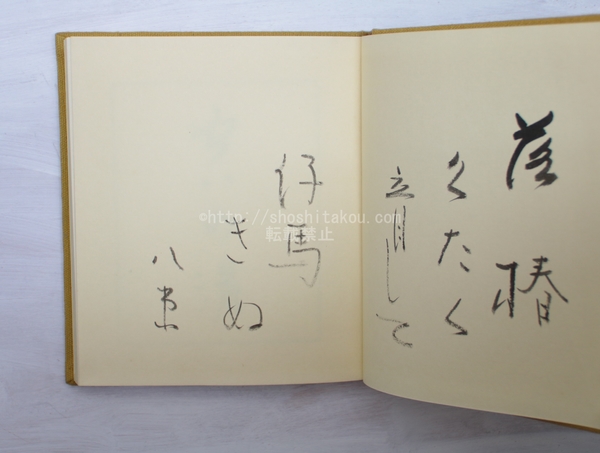 落椿
くたく
音して
仔馬
きぬ
八束
©http://shoshitakou.com/
転載禁止